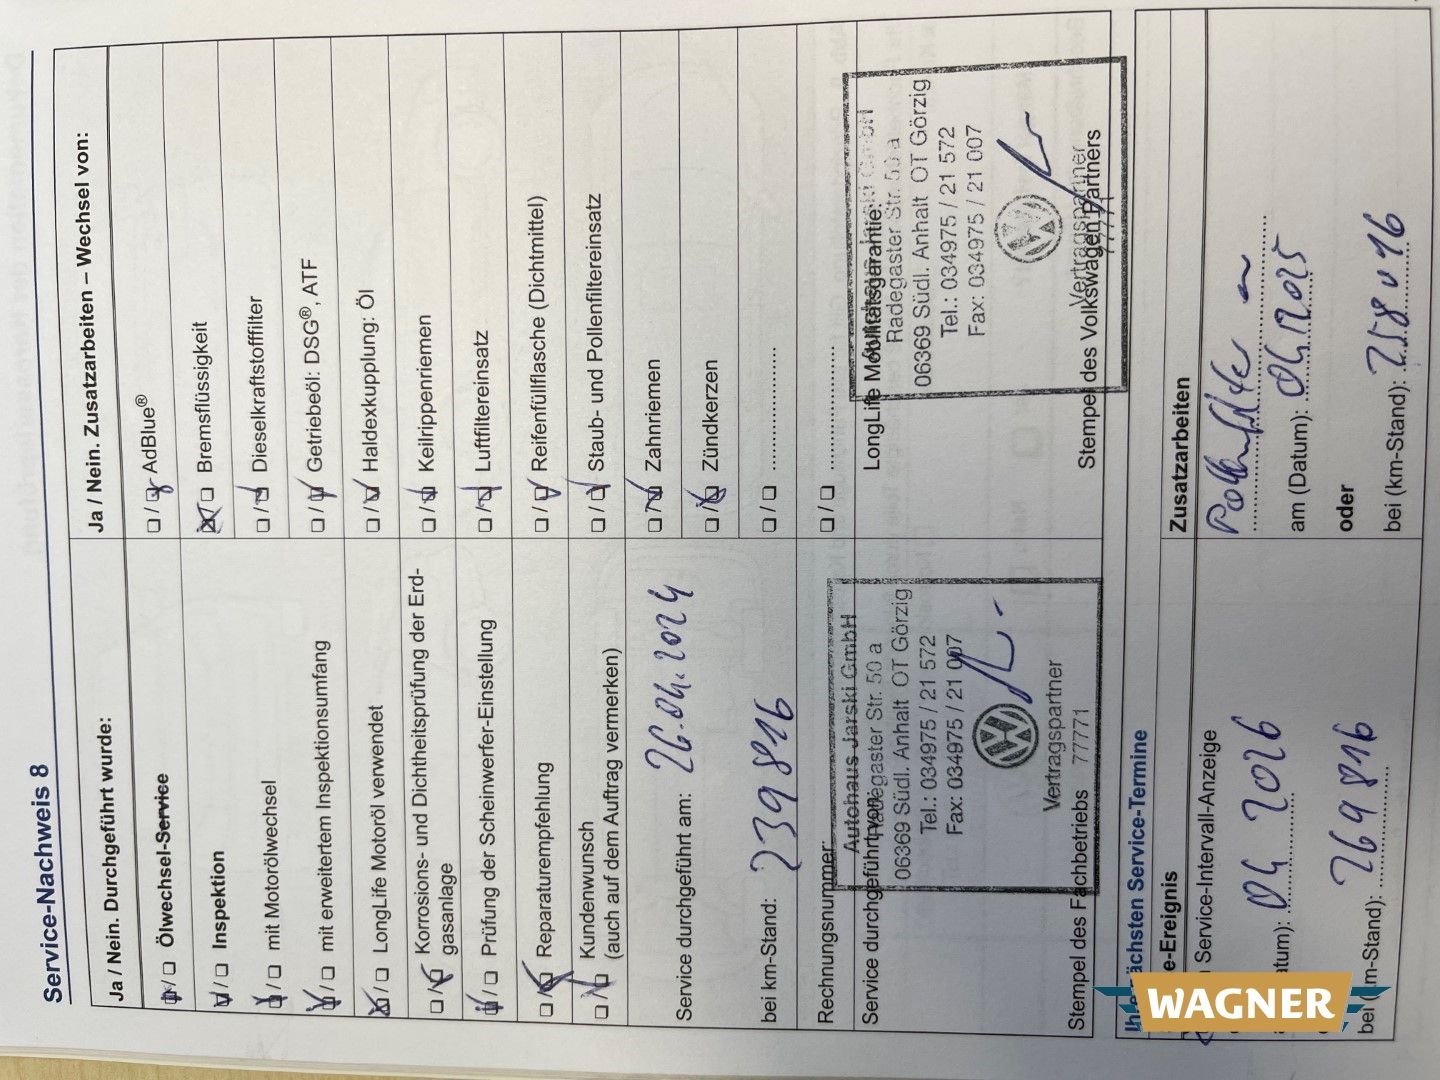 Service-Nachweis 8
Ja / Nein. Durchgeführt wurde:
☒ / ☐ Ölwechsel-Service
☒ / ☐ Inspektion
☒ / ☐ mit Motorölwechsel
☒ / ☐ mit erweitertem Inspektionsumfang
☒ / ☐ LongLife Motoröl verwendet
☐ / ☒ Korrosions- und Dichtheitsprüfung der Erd-
gasanlage
☒ / ☐ Prüfung der Scheinwerfer-Einstellung
☐ / ☒ Reparaturempfehlung
☐ / ☒ Kundenwunsch
(auch auf dem Auftrag vermerken)
Service durchgeführt am: 26.04.2024
bei km-Stand: 239816
Rechnungsnummer:
Service durchgeführt von:
Autohaus Jarski GmbH
Radegaster Str. 50 a
06369 Südl. Anhalt OT Görzig
Tel.: 034975 / 21 572
Fax: 034975 / 21 007
Vertragspartner
77771
Stempel des Fachbetriebs
Ja / Nein. Zusatzarbeiten – Wechsel von:
☐ / ☒ AdBlue®
☒ / ☐ Bremsflüssigkeit
☐ / ☒ Dieselkraftstofffilter
☐ / ☒ Getriebeöl: DSG®, ATF
☐ / ☒ Haldexkupplung: Öl
☐ / ☒ Keilrippenriemen
☐ / ☒ Luftfiltereinsatz
☐ / ☒ Reifenfüllflasche (Dichtmittel)
☐ / ☒ Staub- und Pollenfiltereinsatz
☐ / ☒ Zahnriemen
☐ / ☒ Zündkerzen
☐ / ☐ ..................
☐ / ☐ ..................
LongLife Mobilitätsgarantie:
Autohaus Jarski GmbH
Radegaster Str. 50 a
06369 Südl. Anhalt OT Görzig
Tel.: 034975 / 21 572
Fax: 034975 / 21 007
Vertragspartner
77771
Stempel des Volkswagen Partners
Ihre nächsten Service-Termine
e-Ereignis
Service-Intervall-Anzeige
atum): 04 2026
bei (km-Stand): 269816
Zusatzarbeiten
Pollenfilter
am (Datum): 04 2025
oder
bei (km-Stand):
WAGNER